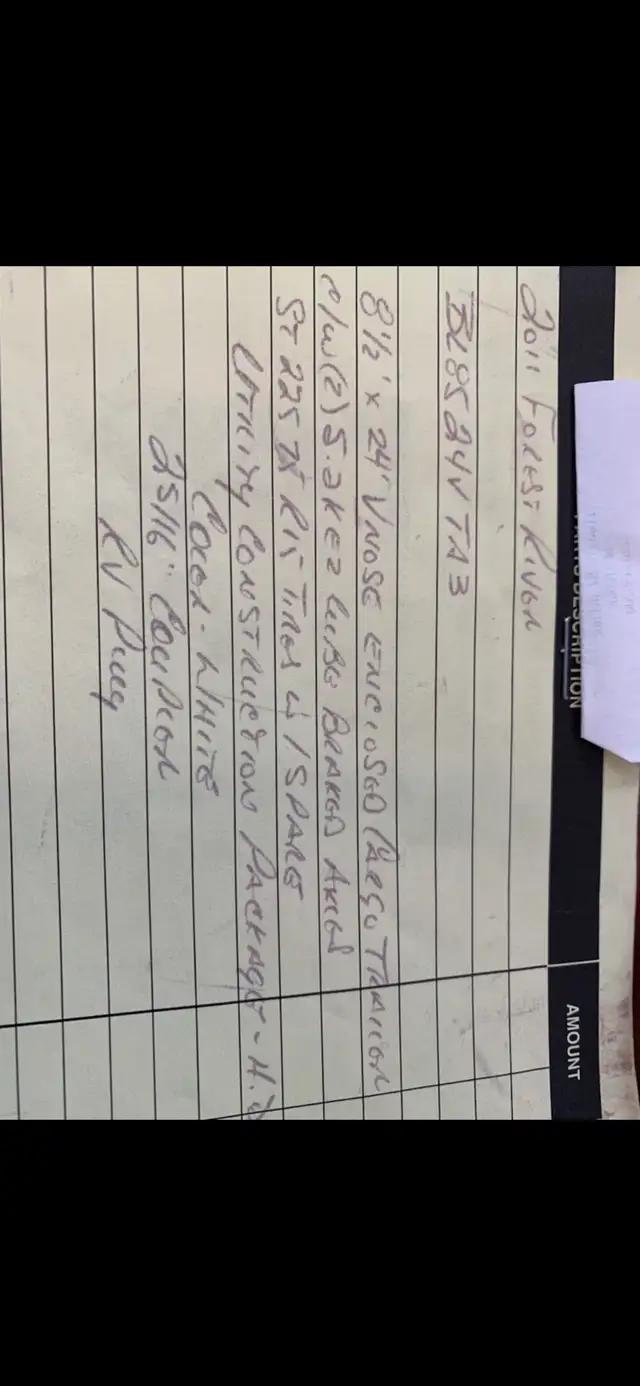 DESCRIPTION AMOUNT
2011 FOREST RIVER
BL8524VTA3
8½' x 24' VNOSE ENCLOSED CARGO TRAILER
c/w (2) 5.2K EZ LUBE BRAKED AXLES
ST 225 75 R15 TIRES w/ SPARE
UTILITY CONSTRUCTION PACKAGE - H.D
COLOR - WHITE
2 5/16" COUPLER
RV PLUG